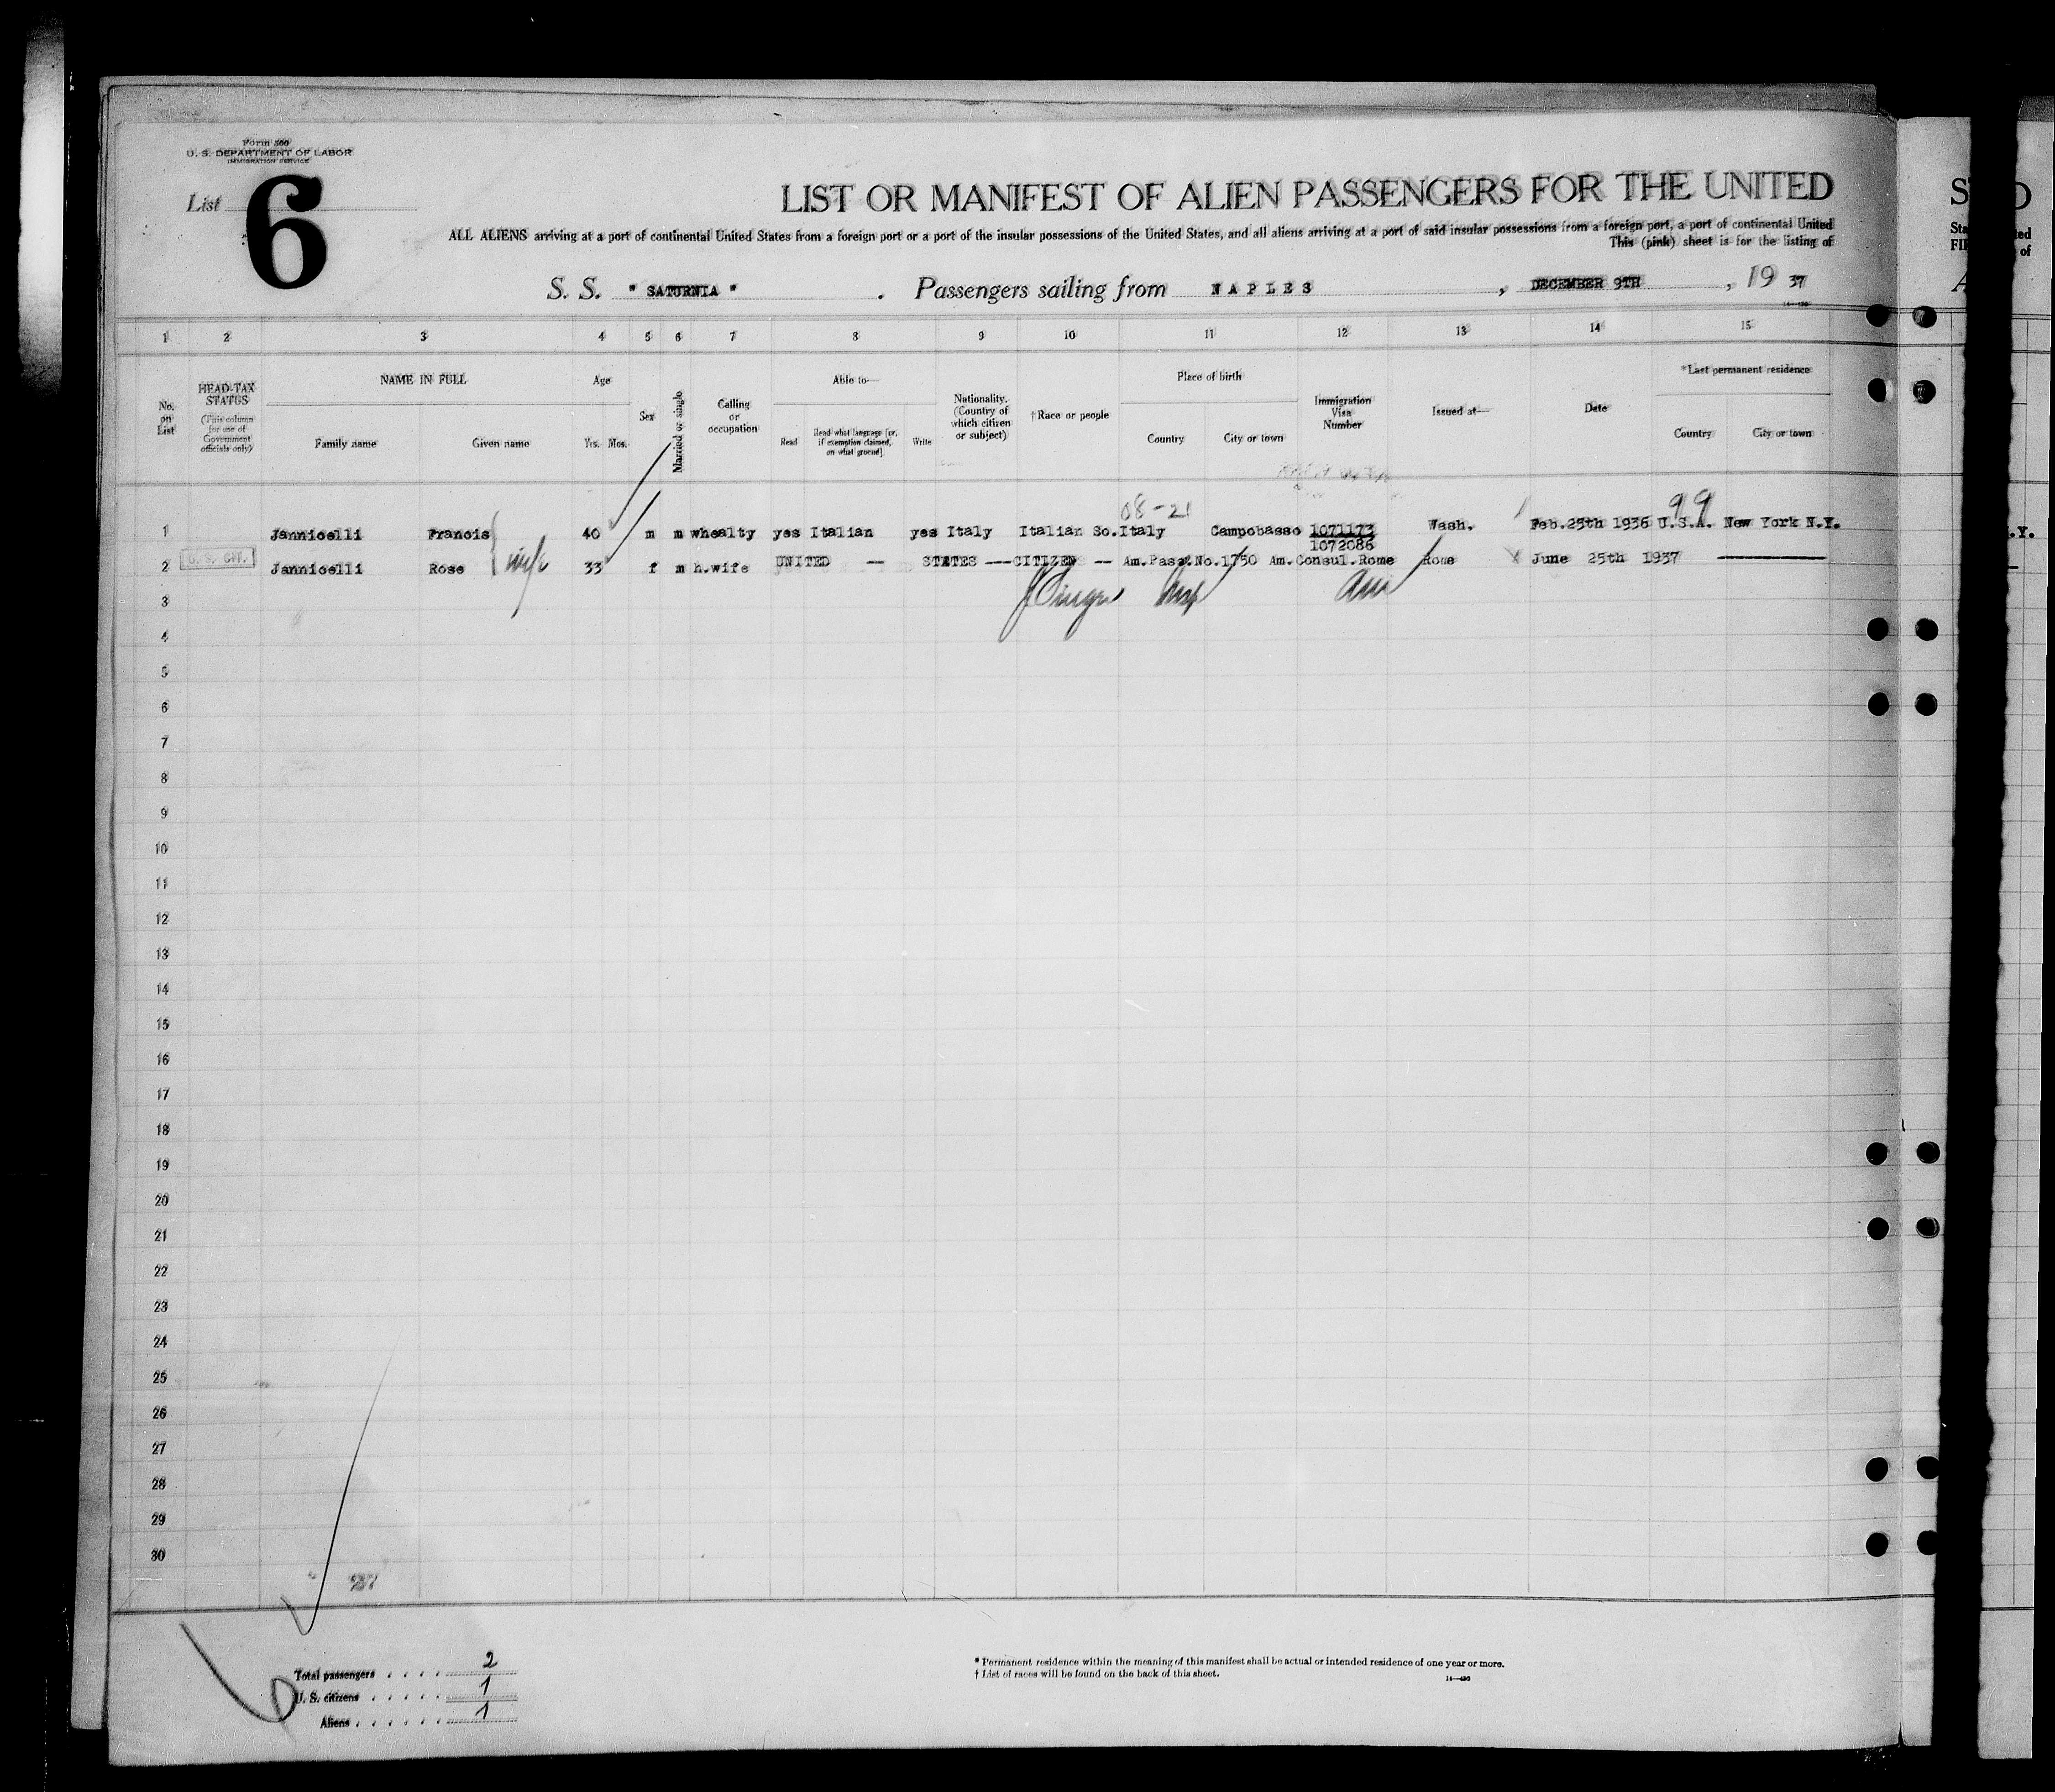 Form 500
U. S. DEPARTMENT OF LABOR
IMMIGRATION SERVICE
List 6
LIST OR MANIFEST OF ALIEN PASSENGERS FOR THE UNITED
ALL ALIENS arriving at a port of continental United States from a foreign port or a port of the insular possessions of the United States, and all aliens arriving at a port of said insular possessions from a foreign port, a port of continental United
This (pink) sheet is for the listing of
S. S. " SATURNIA ". Passengers sailing from NAPLES, DECEMBER 9TH, 19 37
1 2 3 4 5 6 7 8 9 10 11 12 13 14 15
No. on List
HEAD-TAX STATUS (This column for use of Government officials only)
NAME IN FULL
Family name Given name
Age
Yrs. Mos.
Sex
Married or single
Calling or occupation
Able to—
Read Read what language [or, if exemption claimed, on what ground] Write
Nationality. (Country of which citizen or subject)
†Race or people
Place of birth
Country City or town
Immigration Visa Number
Issued at—
Date
*Last permanent residence
Country City or town
08-21 99
1 Jannicelli Francis 40 m m whealty yes Italian yes Italy Italian So. Italy Campobasso 1071173 Wash. Feb.25th 1936 U.S.A. New York N.Y.
1072086
2 U.S. CIT. Jannicelli Rose wife 33 f m h.wife UNITED -- STATES ---CITIZEN -- Am.Pass.No.1750 Am.Consul.Rome Rome June 25th 1937
3
4
5
6
7
8
9
10
11
12
13
14
15
16
17
18
19
20
21
22
23
24
25
26
27
28
29
30
Total passengers . . . . 2
U. S. citizens . . . . . 1
Aliens . . . . . . 1
* Permanent residence within the meaning of this manifest shall be actual or intended residence of one year or more.
† List of races will be found on the back of this sheet.